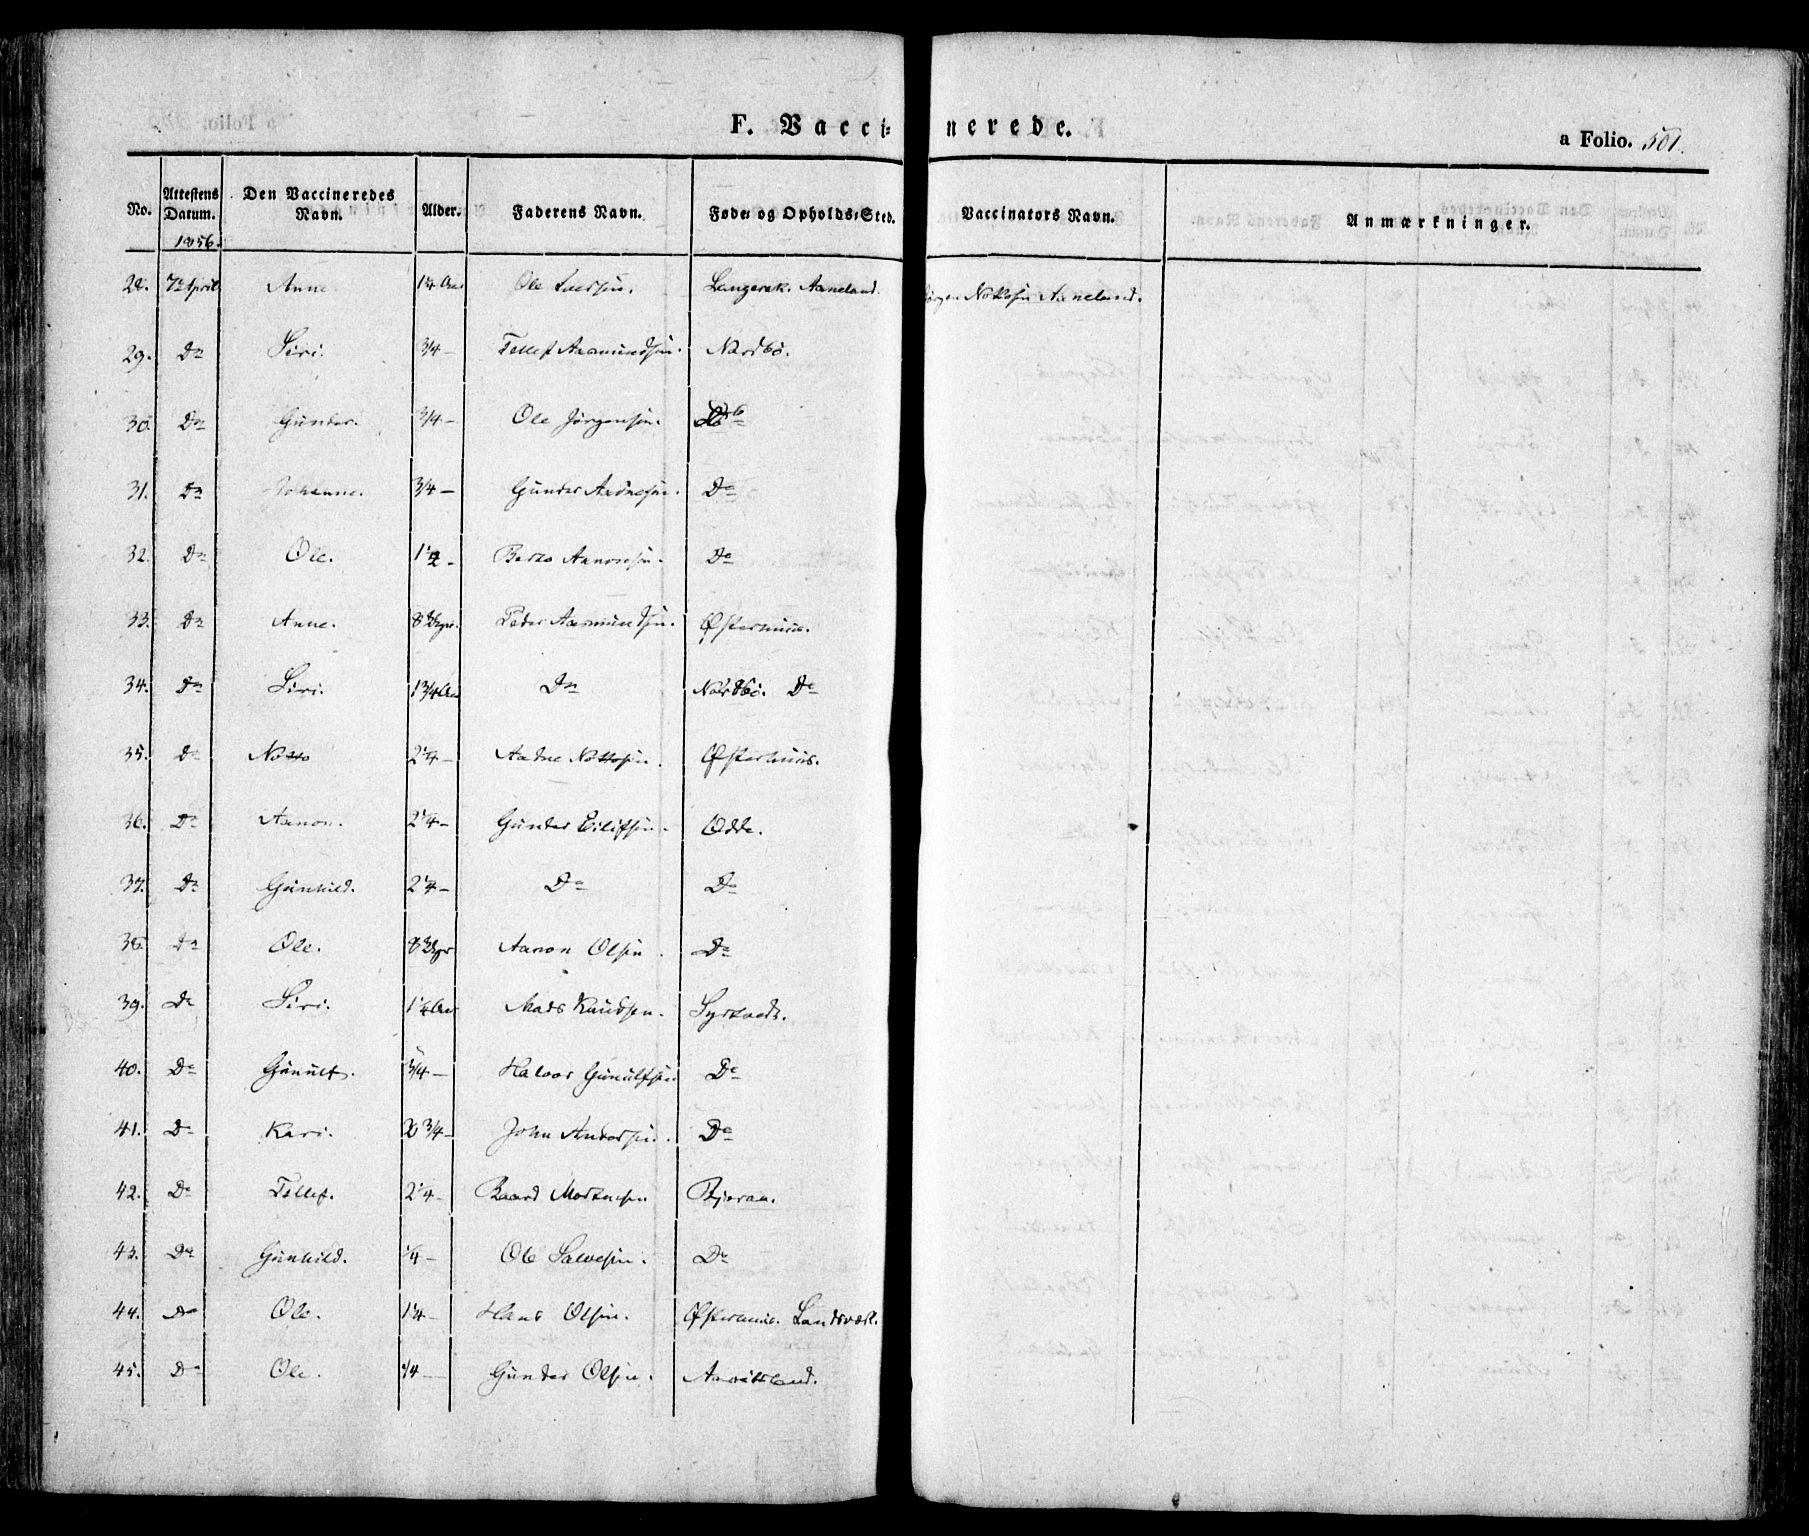 F. Vaccinerede.
a Folio. 501.
No. Attestens Datum. Den Vaccineredes Navn. Alder. Faderens Navn. Føde- og Opholds-Sted. Vaccinators Navn. Anmærkninger.
1856.
28. 7de April Anne 1 1/4 Aar Ole Langerak. Aaneland. Aaneland.
29. Do Siri. 3/4 — Tellef Aasmundsen. Nordbö.
30. Do Gunder. 3/4 — Ole Jörgensen. Do
31. Do Johanne. 3/4 — Gunder Aadnesen. Do
32. Do Ole. 1 1/2 — Do
33. Do Anne. 8 Peder Aasmundsen. Østerhuus.
34. Do Siri. 1 3/4 Aar Do Nordbö. Do
35. Do 2 1/4 — Aadne Østerhuus.
36. Do Aanon. 2 1/4 — Gunder Eilifsen. Odde.
37. Do Gunhild. 2 1/4 — Do Do
38. Do Ole. 8 Aanon Olsen. Do
39. Do Siri. Mads Knudsen.
40. Do Gunult. 3/4 — Halvor Gunultsen Do
41. Do Kari. 3/4 — John Andersen. Do
42. Do Tellef. 2 1/4 — Baard Mortensen Bjoraa.
43. Do Gunhild. 1/4 — Ole Salvesen. Do
44. Do Ole. 1 1/4 — Hans Olsen. Østerhuus.
45. Do Ole. 1/4 — Gunder Olsen.